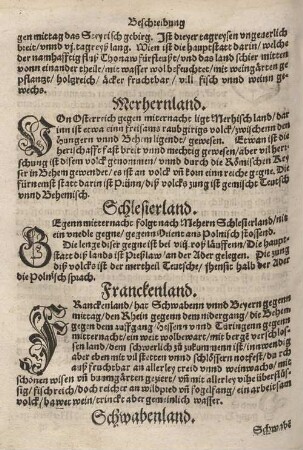 Beschreibung
gen mittag das Steyrisch gebirg. Ist dreyer tagreysen vngeuerlich
breit/vnnd vj. tagreyß lang. Wien ist die hauptstatt darin/welche
der namhafftig fluß Thonaw fürfleüßt/vnd das land schier mitten
vonn einander theilt/mit wasser wol befeuchtet/mit weingärten ge
pflantzt/holtzreich/äcker fruchtbar/voll fisch vnnd weinn ge
wechs.
Merhernland.
VOn Österreich gegen mitternacht ligt Merhisch land/dar
inn ist etwa ein freisams raubgirigs volck/zwischenn den
Hungern vnnd Behem ligende/gewesen. Etwan ist dis
herschafft fast breit vnnd mechtig gewesen/aber vil beher
schung ist disem volck genommen/vnnd durch die Römischen Key
ser in Behem gewendet/es ist an volck vnd korn einn reiche gegne. Die
fürnemst statt darin ist Prünn/diß volcks zung ist gemischt Teutsch
vnnd Behemisch.
Schlesierland.
GEgenn mitternacht folgt nach Mehern Schlesierland/nit
ein vnedle gegne/gegenn Orient ans Polnisch stossend.
Die lenge diser gegne ist bei viij. roß läuffenn/Die haupt
statt diß lands ist Preßlaw/an der Ader gelegen. Die zung
diß volcks ist der mertheil Teutsche/jhensit halb der Ader
die Polnisch sprach.
Franckenland.
FRanckenland/hat Schwabenn vnnd Beyern gegenn
mittag/den Rhein gegenn dem nidergang/die Behem
gegen dem auffgang/Hessenn vnnd Türingenn gegenn
mitternacht/ein weit wolbewart/mit bergen verschlos
senn land/dem schwerlich zu zukummenn ist/innwendig
aber eben mit vil stetten vnnd schlössern notfest/durch
auß fruchtbar an allerley treid vnnd weinwachs/mit
schönen wisen vnd baumgärten geziert/vnd mit allerley vihe überflüs
sig/fischreich/doch reicher an wildpred vnd fogelfang/ein arbeitsam
volck/bawet wein/trinckt aber gemeinlich wasser.
Schwabenland.
Schwabē